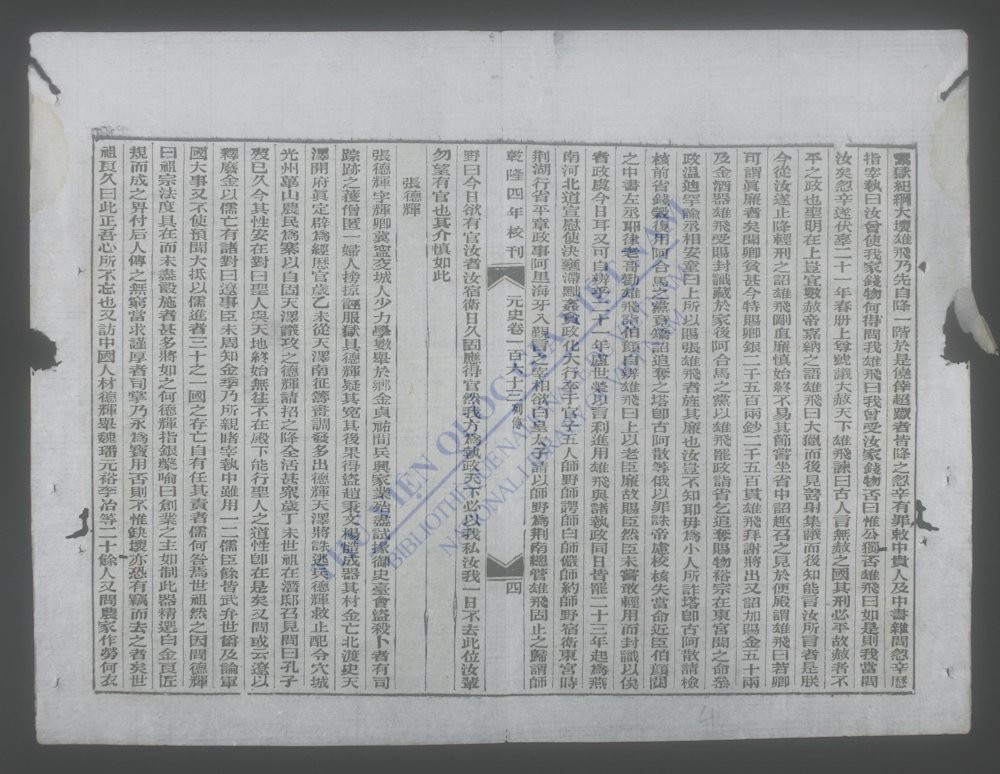 繫獄紀綱大壞雄飛乃先自降一階於是僥倖超躐者皆降之忽辛有罪敕中貴人及中書雜問忽辛歷
指宰執曰汝曾使我家錢物何得問我雄飛曰我曾受汝家錢物否曰惟公獨否雄飛曰如是則我當問
汝矣忽辛遂伏辜二十一年春册上尊號議大赦天下雄飛諫曰古人言無赦之國其刑必平故赦者不
平之政也聖明在上豈宜數赦帝嘉納之語雄飛曰大獵而後見善射集議而後知能言汝所言者是朕
今從汝遂止降輕刑之詔雄飛剛直廉慎始終不易其節嘗坐省中詔趣召之見於便殿謂雄飛曰若卿
可謂真廉者矣聞卿貧甚今特賜卿銀二千五百兩鈔二千五百貫雄飛拜謝將出又詔加賜金五十兩
及金酒器雄飛受賜封識藏於家後阿合馬之黨以雄飛罷政詣省乞追奪賜物裕宗在東宮聞之命參
政溫迪罕諭丞相安童曰上所以賜張雄飛者旌其廉也汝豈不知耶毋為小人所詐塔卽古阿散請檢
核前省錢糓復用阿合馬之黨竟矯詔追奪之塔卽古阿散等俄以罪誅帝慮校核失當命近臣伯顏閱
之中書左丞耶律老哥勸雄飛詣伯顏自辨雄飛曰上以老臣廉故賜臣然臣未嘗敢輕用而封識以俟
者政虞今日耳又可自辨乎二十一年盧世榮以言利進用雄飛與諸執政同日皆罷二十三年起爲燕
南河北道宣慰使決壅滯黜姦貪政化大行卒于官子五人師野師諤師白師儼師約師野宿衛東宮時
荆湖行省平章政事阿里海牙入覲言之宰相欲白皇太子請以師野爲荆南總管雄飛固止之歸謂師
乾隆四年校刊
元史卷一百六十三 列傳
四
野曰今日欲有官汝者汝宿衛日久固應得官然我方爲執政天下必以我私汝我一日不去此位汝輩
勿望有官也其介慎如此
張德輝
張德輝字輝卿冀寧交城人少力學數舉於鄉金貞祐間兵興家業殆盡試掾御史臺會盜殺卜者有司
踪跡之獲僧匿一婦人搒掠誣服獄具德輝疑其寃其後果得盜趙秉文楊慥咸器其材金亡北渡史天
澤開府真定辟爲經歷官歲乙未從天澤南征籌畫調發多出德輝天澤將誅逃兵德輝救止配令穴城
光州華山農民爲寨以自固天澤議攻之德輝請招之降全活甚衆歲丁未世祖在潛邸召見問曰孔子
歿已久今其性安在對曰聖人與天地終始無徃不在殿下能行聖人之道性卽在是矣又問或云遼以
釋廢金以儒亡有諸對曰遼事臣未周知金季乃所親睹宰執中雖用一二儒臣餘皆武弁世爵及論軍
國大事又不使預聞大抵以儒進者三十之一國之存亡自有任其責者儒何咎焉世祖然之因問德輝
曰祖宗法度具在而未盡設施者甚多將如之何德輝指銀槃喻曰創業之主如制此器精選白金良匠
規而成之畀付后人傳之無窮當求謹厚者司掌乃永爲寶用否則不惟缺壞亦恐有竊而去之者矣世
祖良久曰此正吾心所不忘也又訪中國人材德輝舉魏璠元裕李冶等二十餘人又問農家作勞何衣
THƯ VIỆN QUỐC GIA VIỆT NAM
BIBLIOTHEQUE NATIONALE DU VIETNAM
NATIONAL LIBRARY OF VIETNAM
4